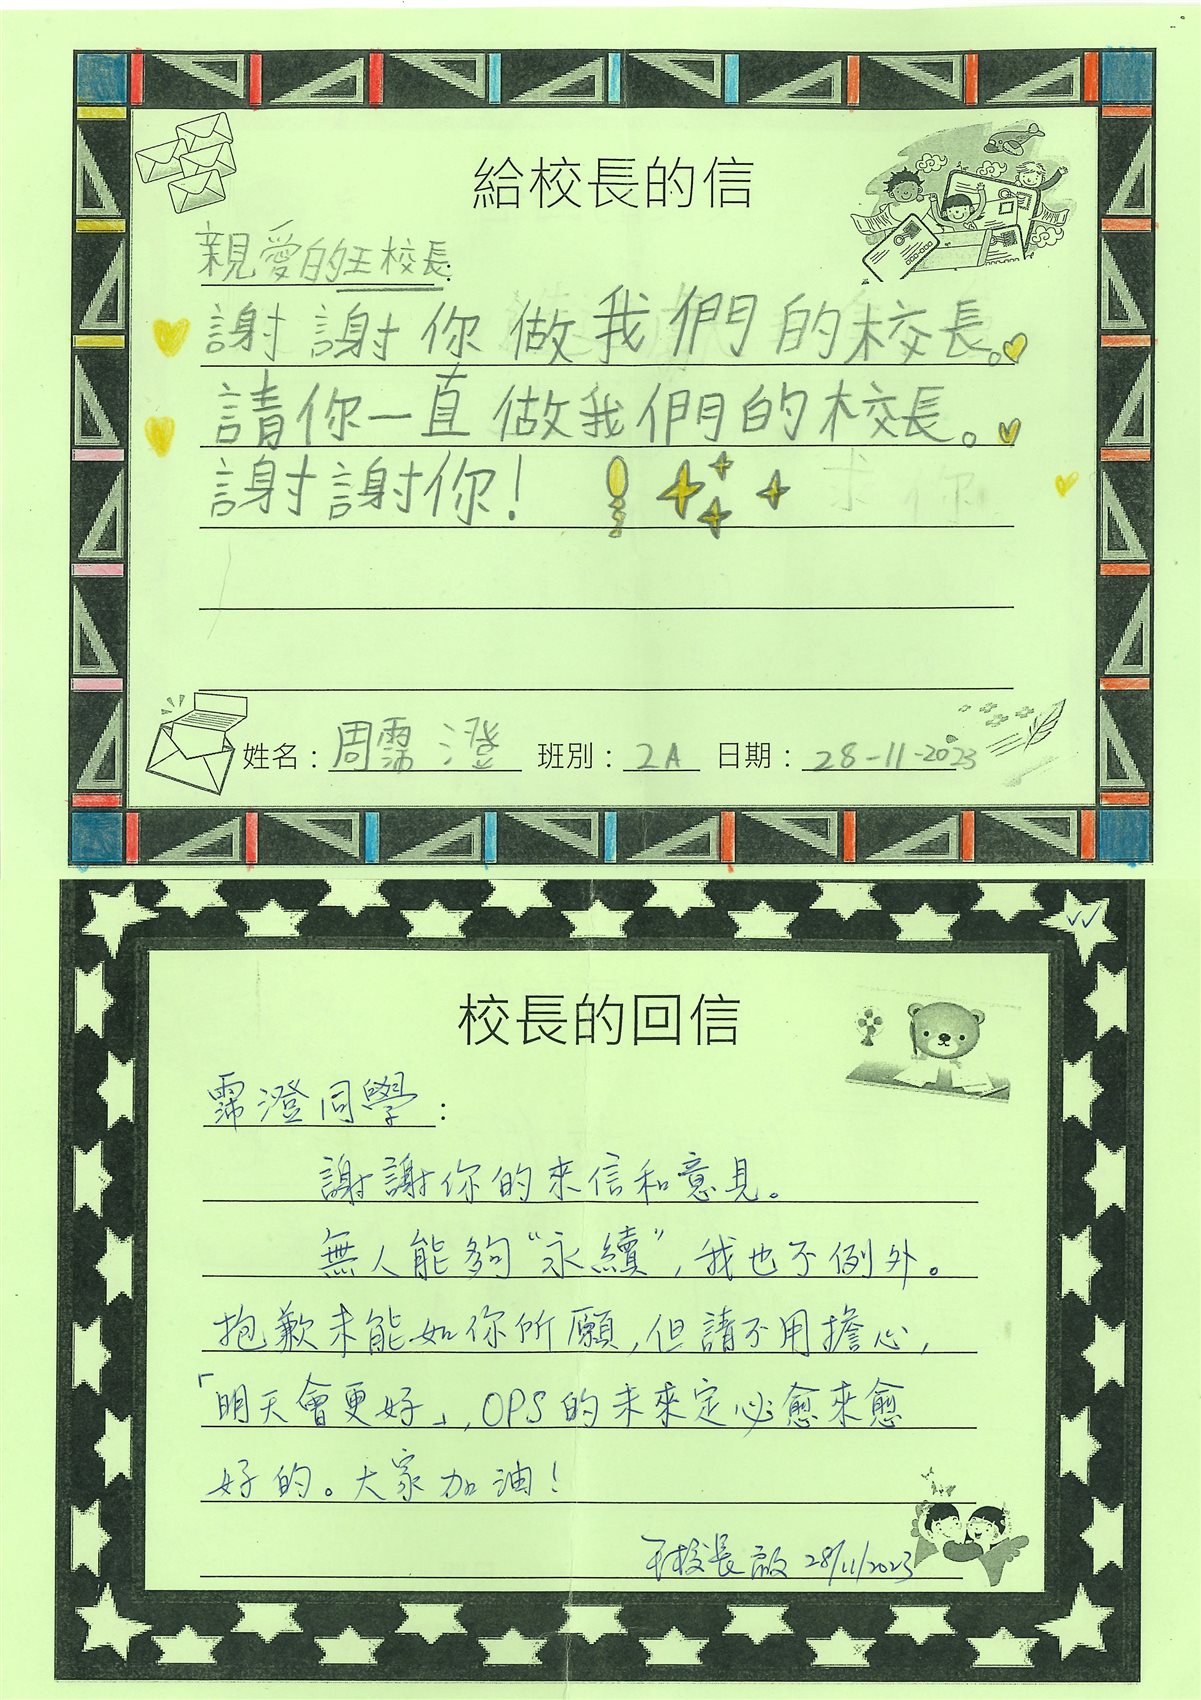 給校長的信
親愛的王校長:
謝謝你做我們的校長。
請你一直做我們的校長。
謝謝你!
求你
姓名：周霈澄 班別：2A 日期：28-11-2023
校長的回信
霈澄同學：
謝謝你的來信和意見。
無人能夠“永續”,我也不例外。
抱歉未能如你所願,但請不用擔心,
「明天會更好」,OPS的未來定必愈來愈
好的。大家加油!
王校長啟 28/11/2023